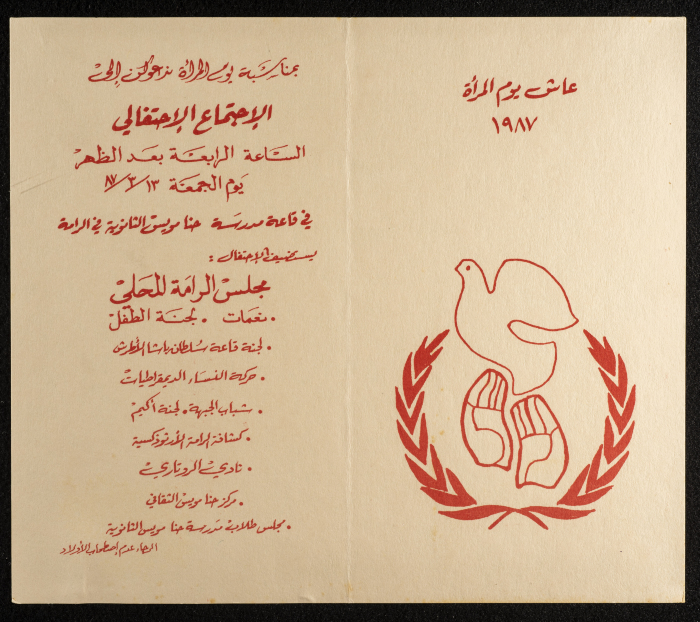 عاش يوم المرأة
١٩٨٧
بمناسبة يوم المرأة ندعوكن إلى
الإجتماع الإحتفالي
الساعة الرابعة بعد الظهر
يوم الجمعة ١٣/٣/٨٧
في قاعة مدرسة حنا مويس الثانوية في الرامة
يستضيف الإحتفال :
مجلس الرامة المحلي
• نعمات • لجنة الطفل
• لجنة قاعة سلطان باشا الأطرش
• حركة النساء الديمقراطيات
• شباب الجبهة • لجنة أكيم
• كشافة الرامة الأرثوذكسية
• نادي الروتاري
• مركز حنا مويس الثقافي
• مجلس طلاب مدرسة حنا مويس الثانوية
الرجاء عدم إصطحاب الأولاد